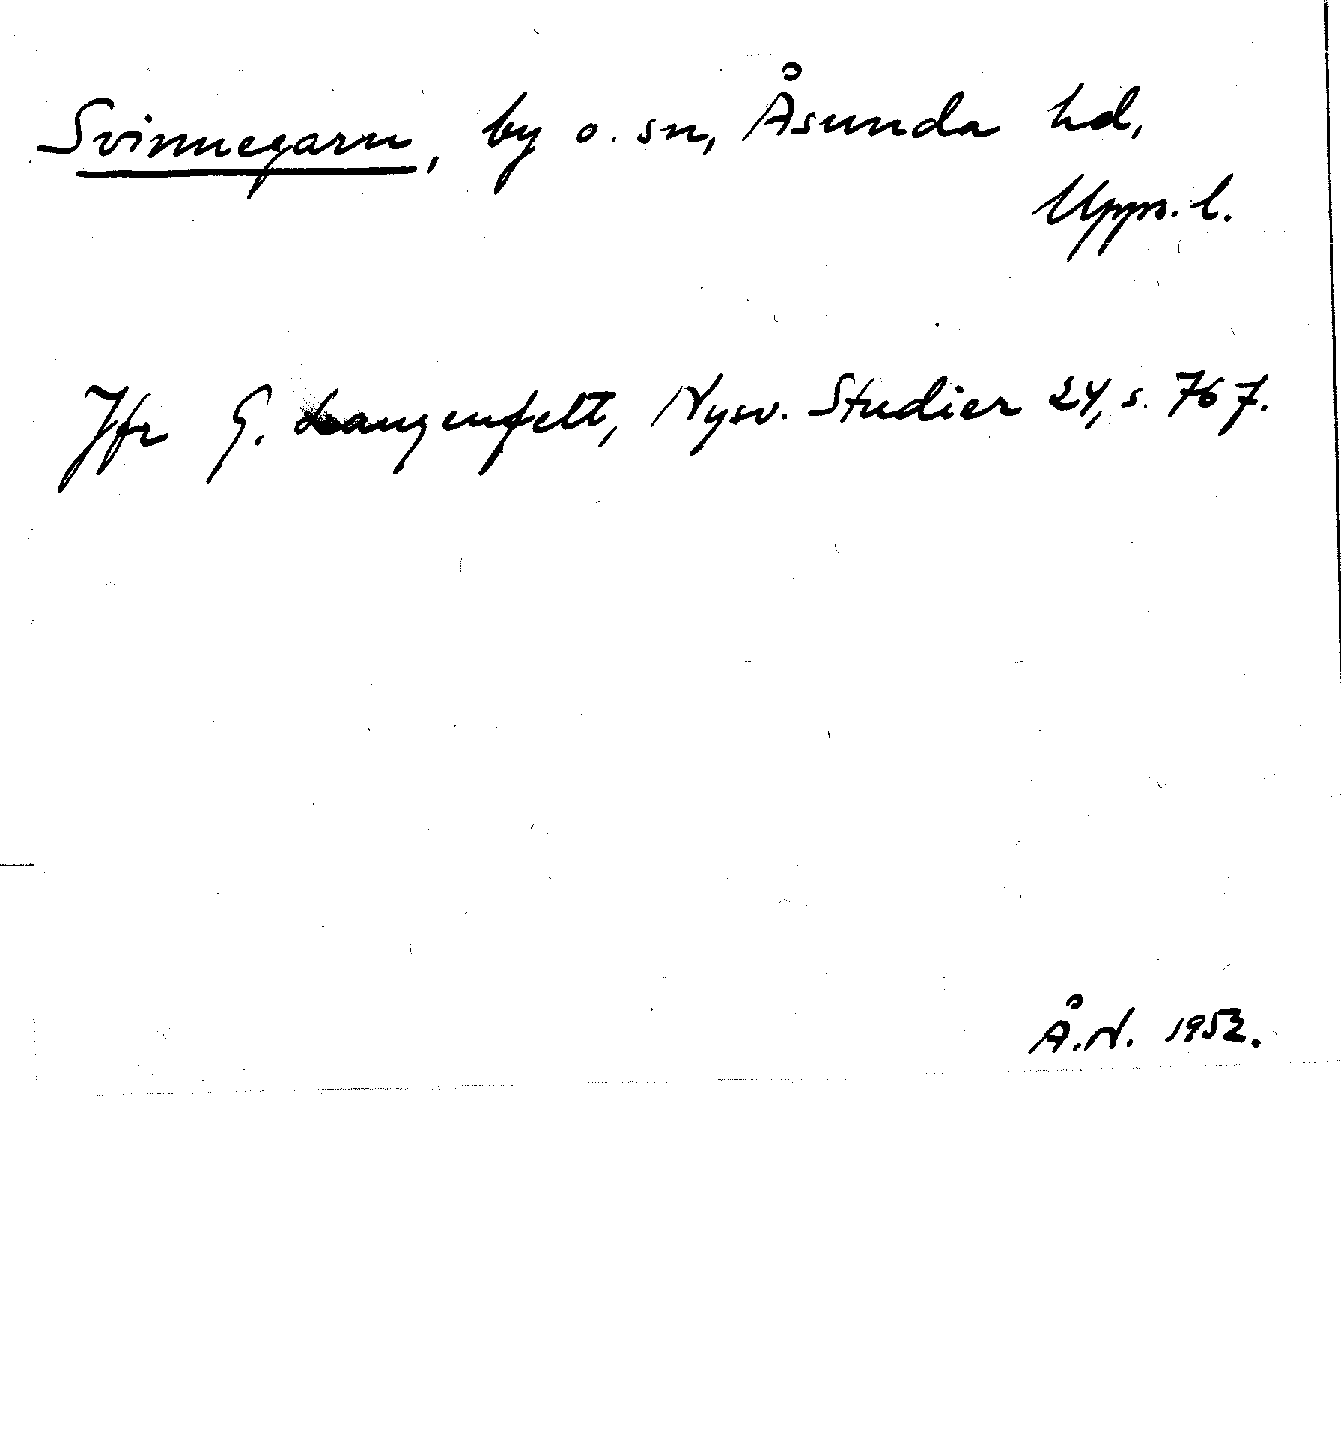 Svinnegarn, by o. sn, Åsunda hd,
Upps. l.
Jfr G. Langenfelt, Nysv. Studier 24, s. 76 f.
Å.N. 1952.